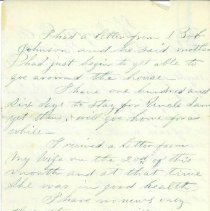 I had a letter from
Johnson and he said mother
had just begin to get able to
go around the house
I have one hundred and
Six days to stay for Uncle Sam
yet then I will go home for a
while
I received a letter from
My Wife on the 20th of this
month and at that time
She was in good health
I have no news